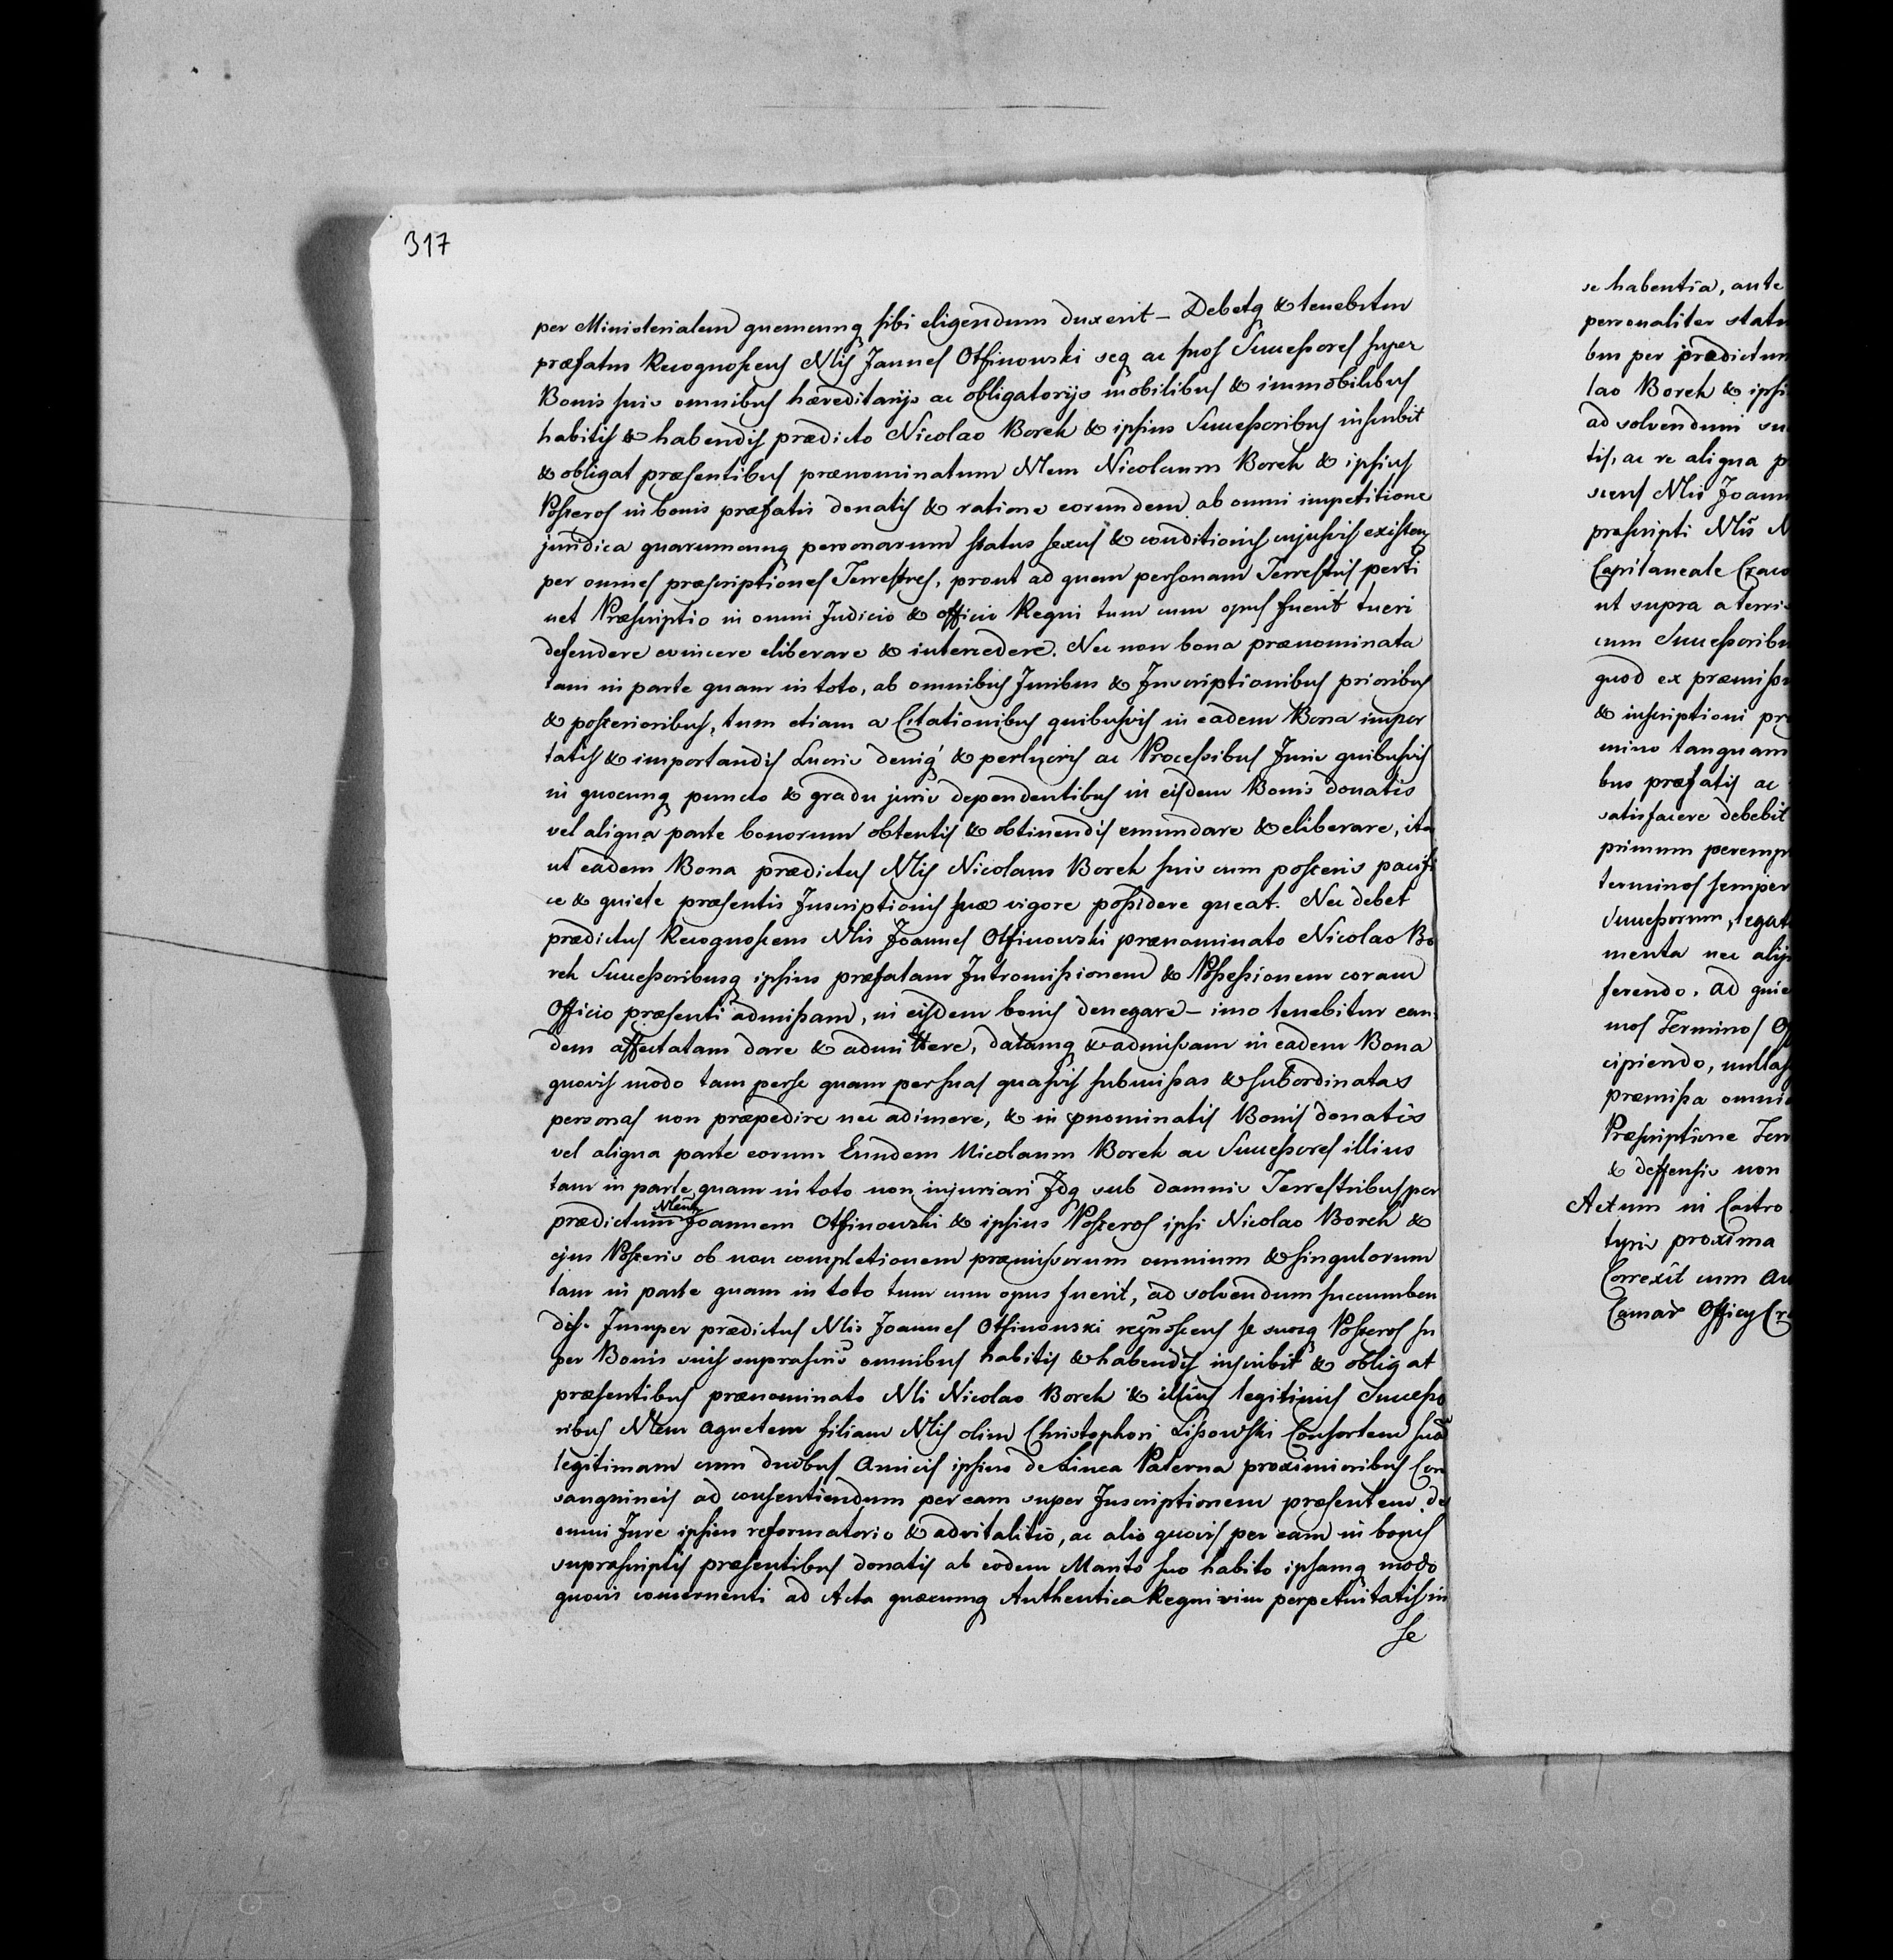 317
per Ministerialem quemcunq sibi eligendum duxerit – Debetq & tenebitur
præfatus Recognoscens Nlis Joannes Otfinowski seq ac suos Successores super
Bonis suis omnibus hæreditarijs ac obligatorijs mobilibus & immobilibus
habitis & habendis prædicto Nicolao Borek & ipsius Successoribus inscribit
& obligat præsentibus prænominatum Nlem Nicolaum Borek & ipsius
Posteros in bonis præfatis donatis & ratione eorundem ab omni impetitione
juridica quarumcunq personarum status sexus & conditionis cujusvis existen
per omnes præscriptiones Terrestres, prout ad quam personam Terrestris perti
net Præscriptio in omni Judicio & officio Regni tum cum opus fuerit tueri
defendere evincere eliberare & intercedere. Nec non bona prænominata
tam in parte quam in toto, ab omnibus Juribus & Inscriptionibus prioribus
& posterioribus, tum etiam a Citationibus quibusvis in eadem Bona impor
tatis & importandis Lucris deniq & perlucris ac Processibus Juris quibusvis
in quocunq puncto & gradu juris dependentibus in eisdem Bonis donatis
vel aliqua parte bonorum obtentis & obtinendis emundare & eliberare, ita
ut eadem Bona prædictus Nlis Nicolaus Borek suis cum posteris pacifi
ce & quiete præsentis Inscriptionis suæ vigore possidere queat. Nec debet
prædictus Recognoscens Nlis Joannes Otfinowski prænominato Nicolao Bo
rek Successoribusq ipsius præfatam Intromissionem & Possessionem coram
Officio præsenti admissam, in eisdem bonis denegare – imo tenebitur ean
dem affectatam dare & admittere, datamq & admissam in eadem Bona
quovis modo tam per se quam per suas quasvis submissas & subordinatas
personas non præpedire nec adimere, & in pnominatis Bonis donatis
vel aliqua parte eorum Eundem Nicolaum Borek ac Successores illius
tam in parte quam in toto non injuriari Idq sub damnis Terrestribus per
prædictum Nlem Joannem Otfinowski & ipsius Posteros ipsi Nicolao Borek &
ejus Posteris ob non completionem præmissorum omnium & singulorum
tam in parte quam in toto tum cum opus fuerit, ad solvendum succumben
dis. Insuper prædictus Nlis Joannes Otfinowski regnoscens se suosq Posteros su
per Bonis suis suprascris omnibus habitis & habendis inscribit & obligat
præsentibus prænominato Nli Nicolao Borek & illius legitimis Successo
ribus Nlem Agnetem filiam Nlis olim Christophori Lissowski Consortem suã
legitimam cum duobus Amicis ipsius de Linea Paterna proximioribus Con
sanguineis ad consentiendum per eam super Inscriptionem præsentem de
omni Jure ipsius reformatorio & advitalitio, ac alio quovis per eam in bonis
suprascriptis præsentibus donatis ab eodem Marito suo habito ipsamq modo
quovis concernenti ad Acta quæcumq Authentica Regni vim perpetuitatis in
se
se habentia, ante
personaliter statu
bus per prædictum
lao Borek & ipsi
ad solvendum su
tis, ac re aliqua p
scens Nlis Joann
præscripti Nlis N
Capitaneale Craco
ut supra a terri
cum Successoribu
quod ex præmisso
& inscriptioni pr
mino tanquam
bus præfatis ac
satisfacere debebit
primum perempt
terminos semper
Successorum, legat
menta nec alij
ferendo, ad quie
mos Terminos O
cipiendo, nullas
præmissa omni
Præscriptione Terr
& deffensis non
Actum in Castro
tyris proxima
Correxit cum Ac
Camar Officij Cr